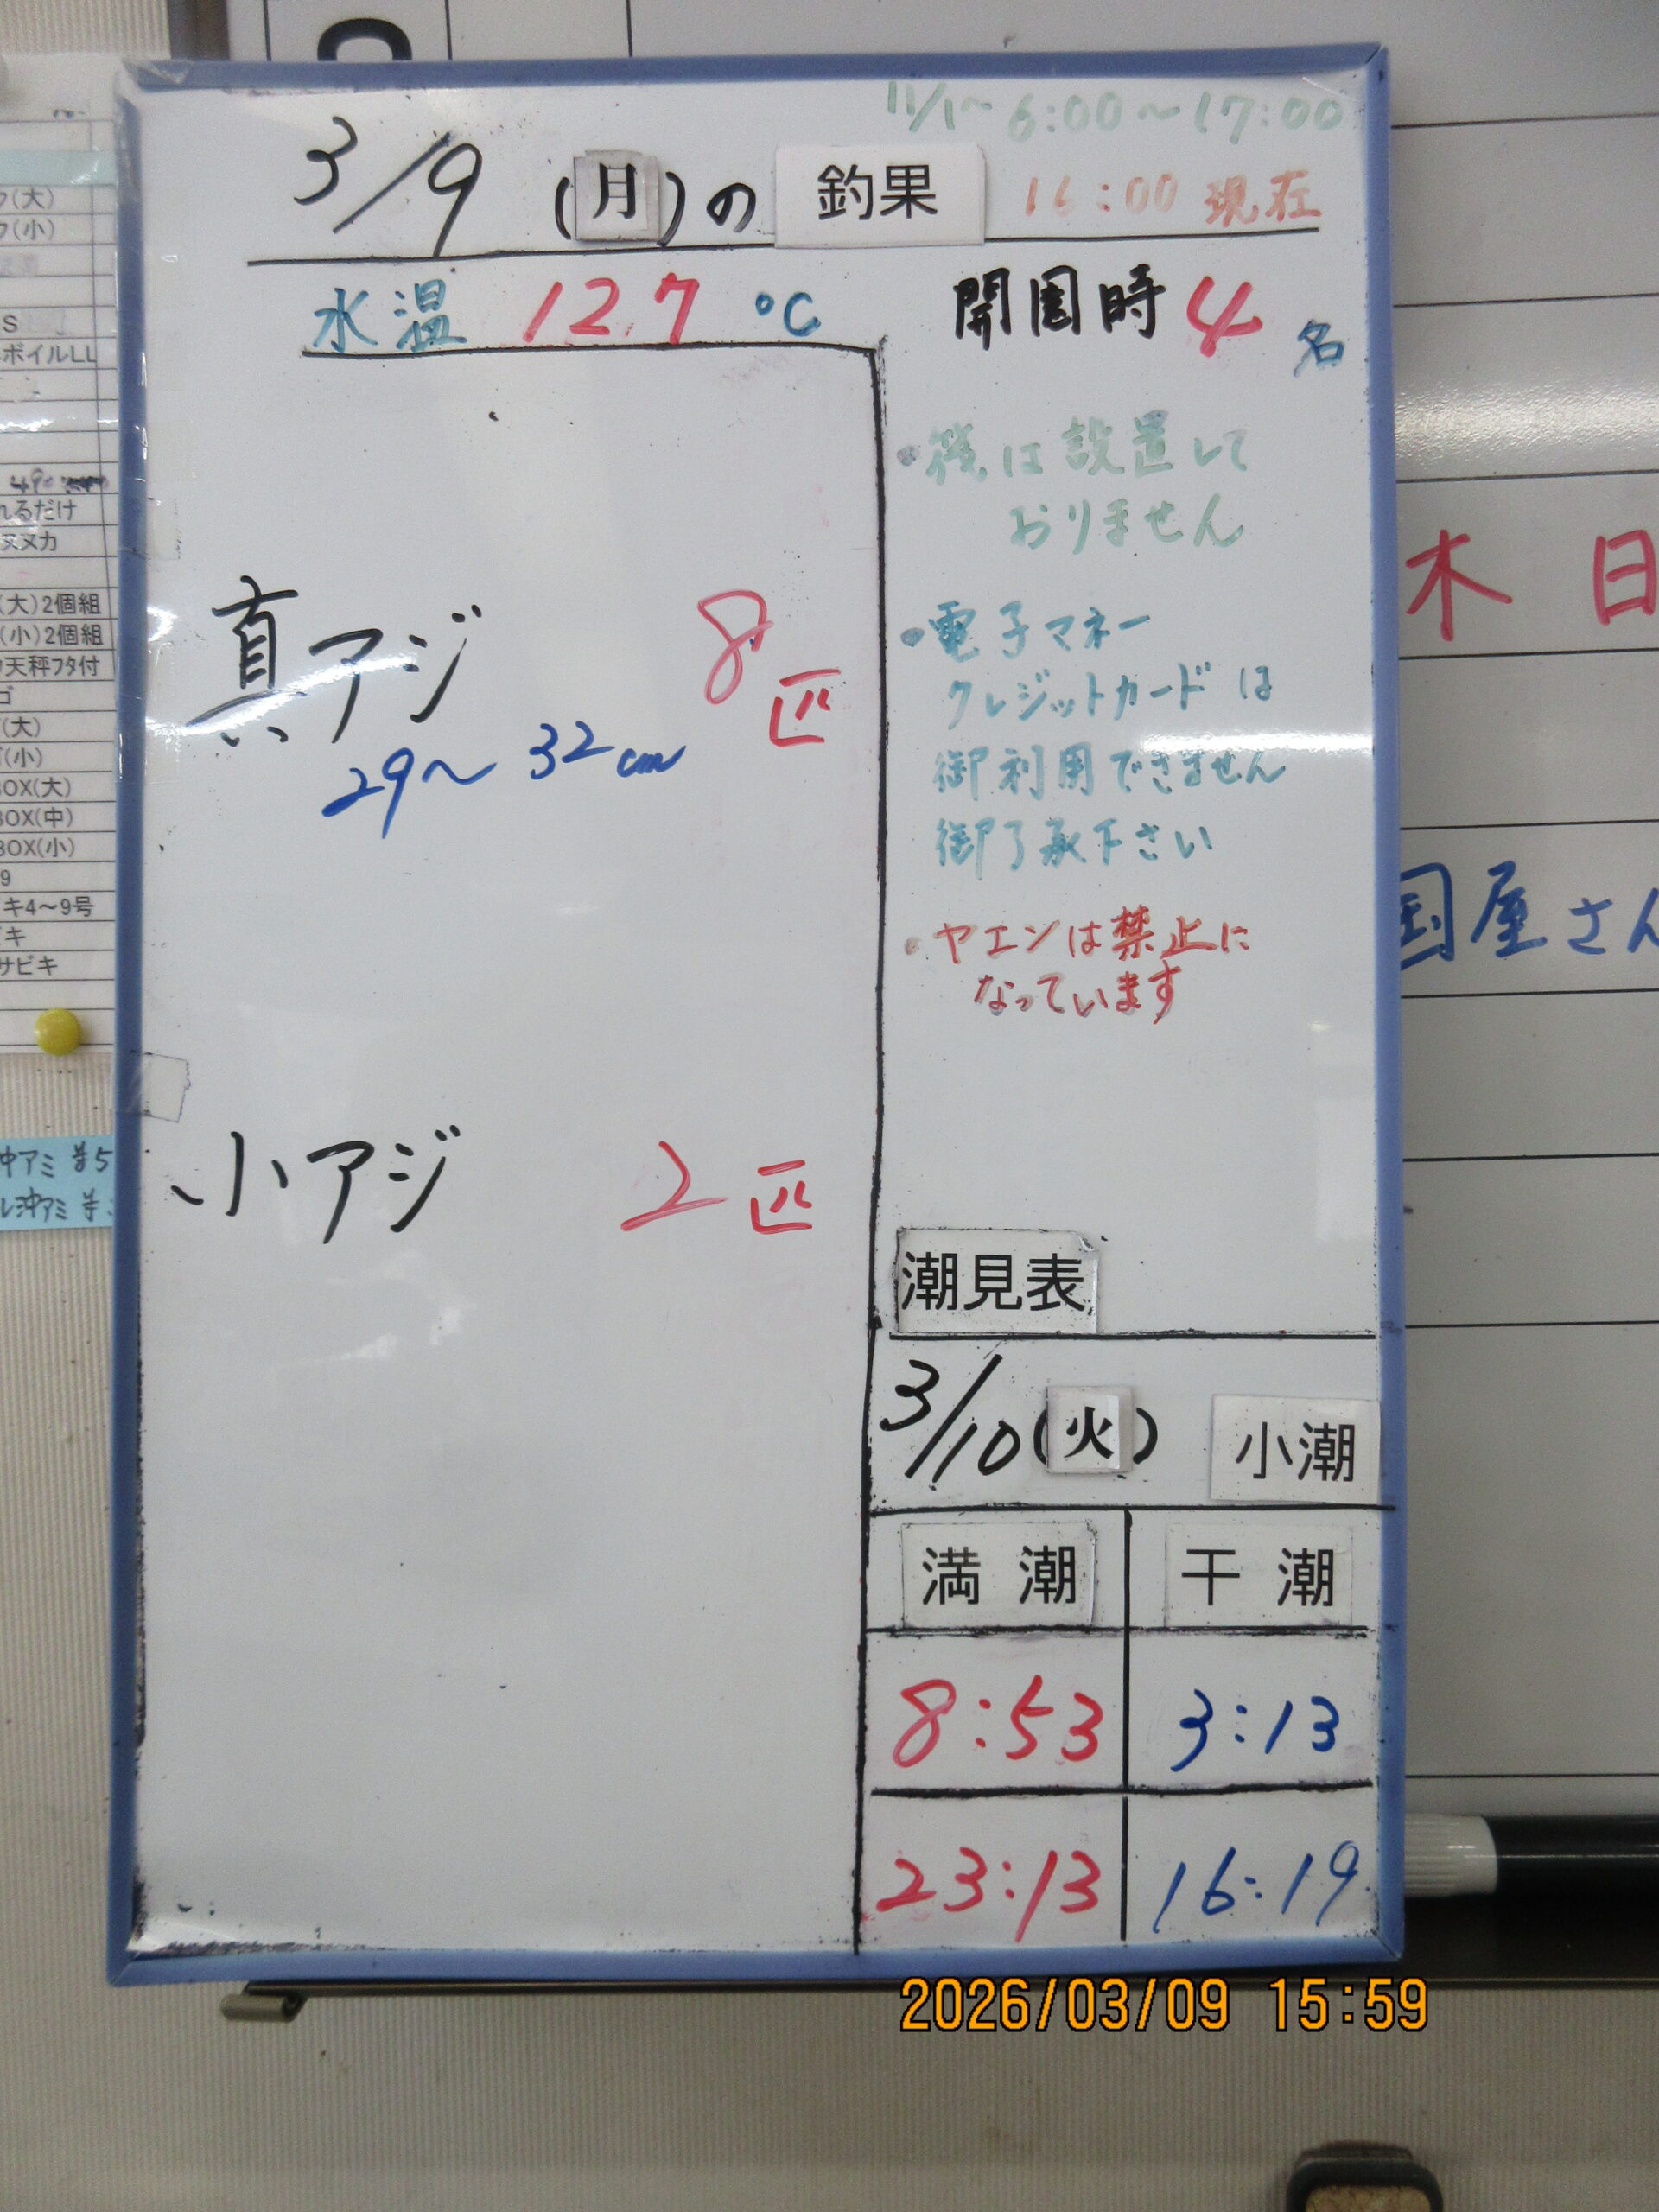 11/1～ 6:00～17:00
3/9 (月)の 釣果 16:00 現在
水温 12.7 ℃
開園時 4名
・筏は設置して
おりません
・電子マネー
クレジットカードは
御利用できません
御了承下さい
・ヤエンは禁止に
なっています
真アジ 8匹
29～32cm
小アジ 2匹
潮見表
3/10(火) 小潮
満潮 干潮
8:53 3:13
23:13 16:19
木 日
国屋さん
(大)
(小)
S
ボイルLL
れるだけ
ヌカ
(大)2個組
(小)2個組
天秤フタ付
ゴ
(大)
(小)
BOX(大)
BOX(中)
BOX(小)
9
キ4～9号
キ
サビキ
沖アミ
沖アミ
2026/03/09 15:59